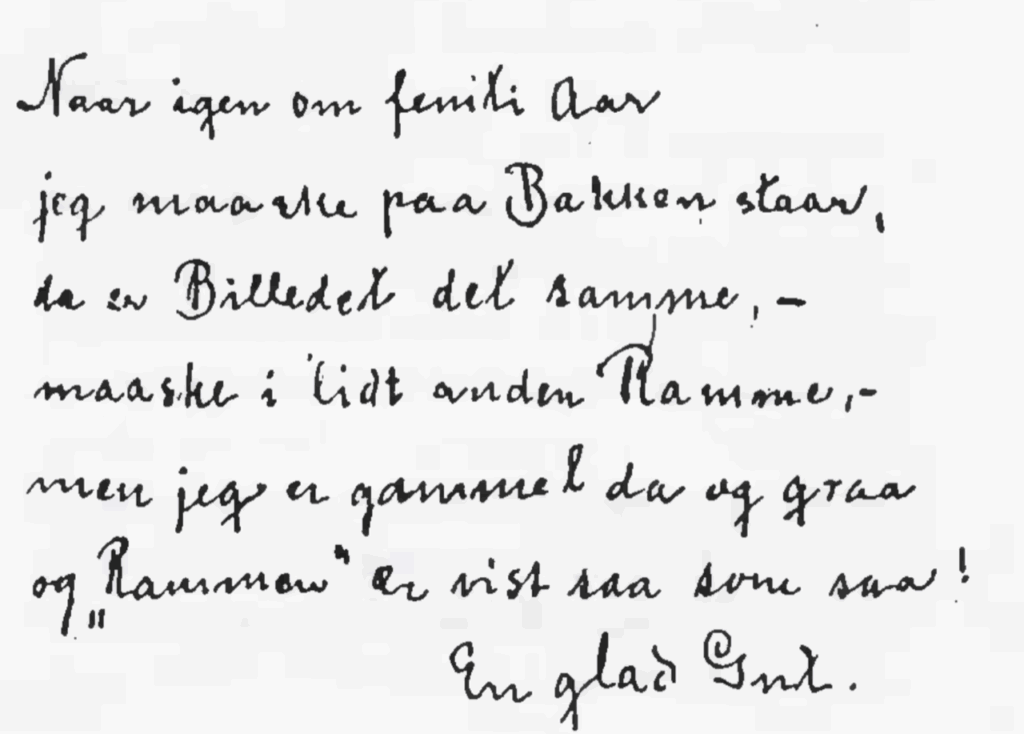 Naar igen om femti Aar
jeg maaske paa Bakken staar,
da er Billedet det samme, –
maaske i lidt anden Ramme, –
men jeg er gammel da og graa
og „Rammen“ er vist saa som saa!
En glad Gut.